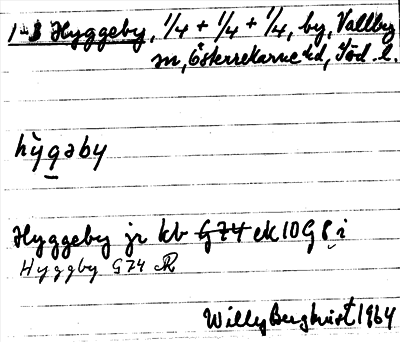 1-3 Hyggeby, 1/4 + 1/4 + 1/4, by, Vallby
sn, Österrekarne hd, Söd. l.
hỳgəby
Hyggeby jr kb G74 ek 10G8i
Hyggby G74 R
Willy Bergkvist 1964